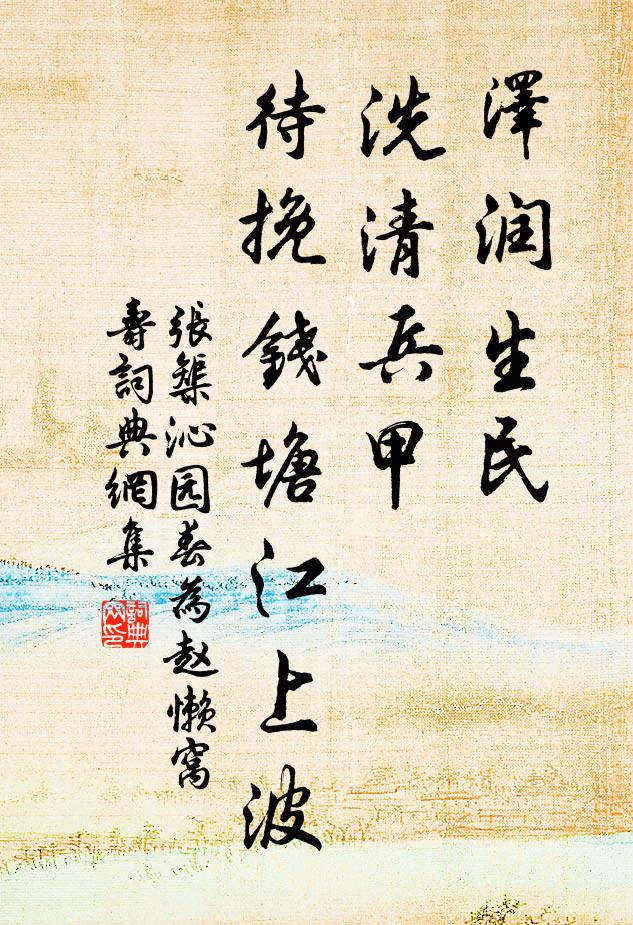 澤润生民
洗清兵甲
待挽錢塘江上波
張榘沁园春為赵懒窩
壽詞典網集
詞典网印